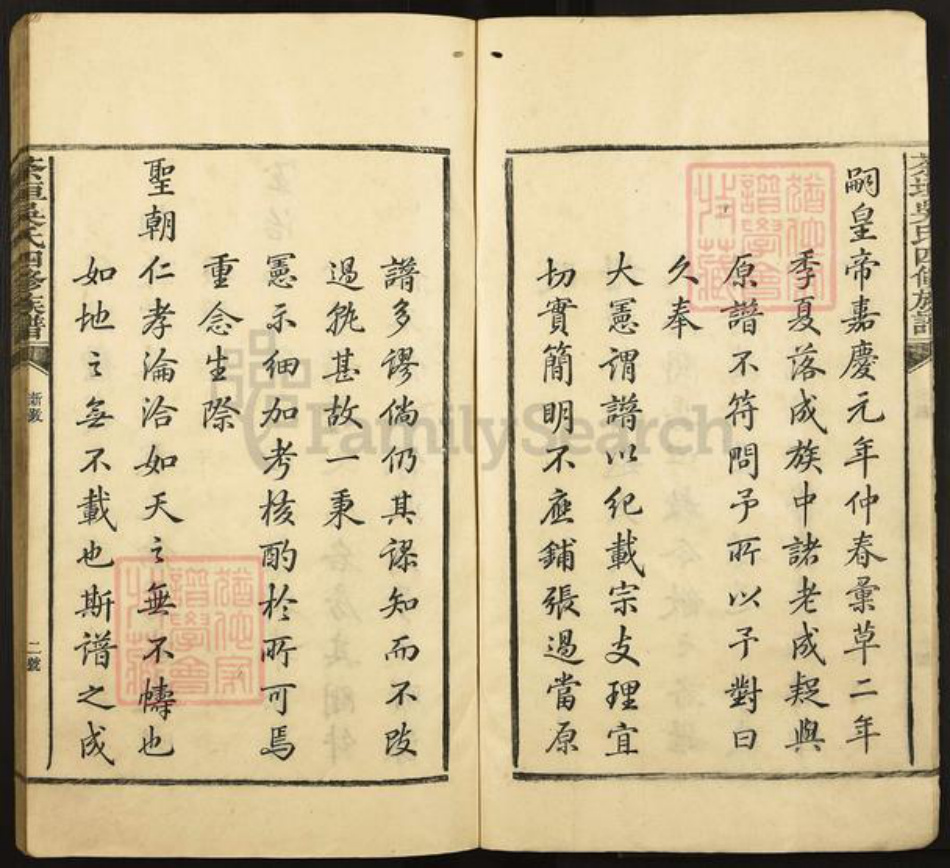 嗣皇帝嘉慶元年仲春彙草二年
季夏落成族中諸老成疑與
原譜不符問予所以予對曰
久奉
大憲謂譜以紀載宗支理宜
切實簡明不應鋪張過當原
譜多謬倘仍其謬知而不改
過孰甚故一秉
憲示細加考核酌於所可焉
重念生際
聖朝仁孝淪洽如天之無不幬也
如地之無不載也斯譜之成
吳氏四修族譜
新敘
二號
FamilySearch